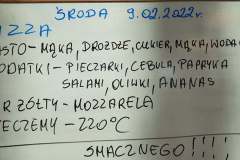 ŚRODA 9.02.2022r.
IZZA
ASTO - MĄKA, DROŻDŻE, CUKIER, MĄKA, WODA
ODATKI - PIECZARKI, CEBULA, PAPRYKA
SALAMI, OLIWKI, ANANAS
R ŻÓŁTY - MOZZARELA
IECZEMY - 220°C
SMACZNEGO!!!!